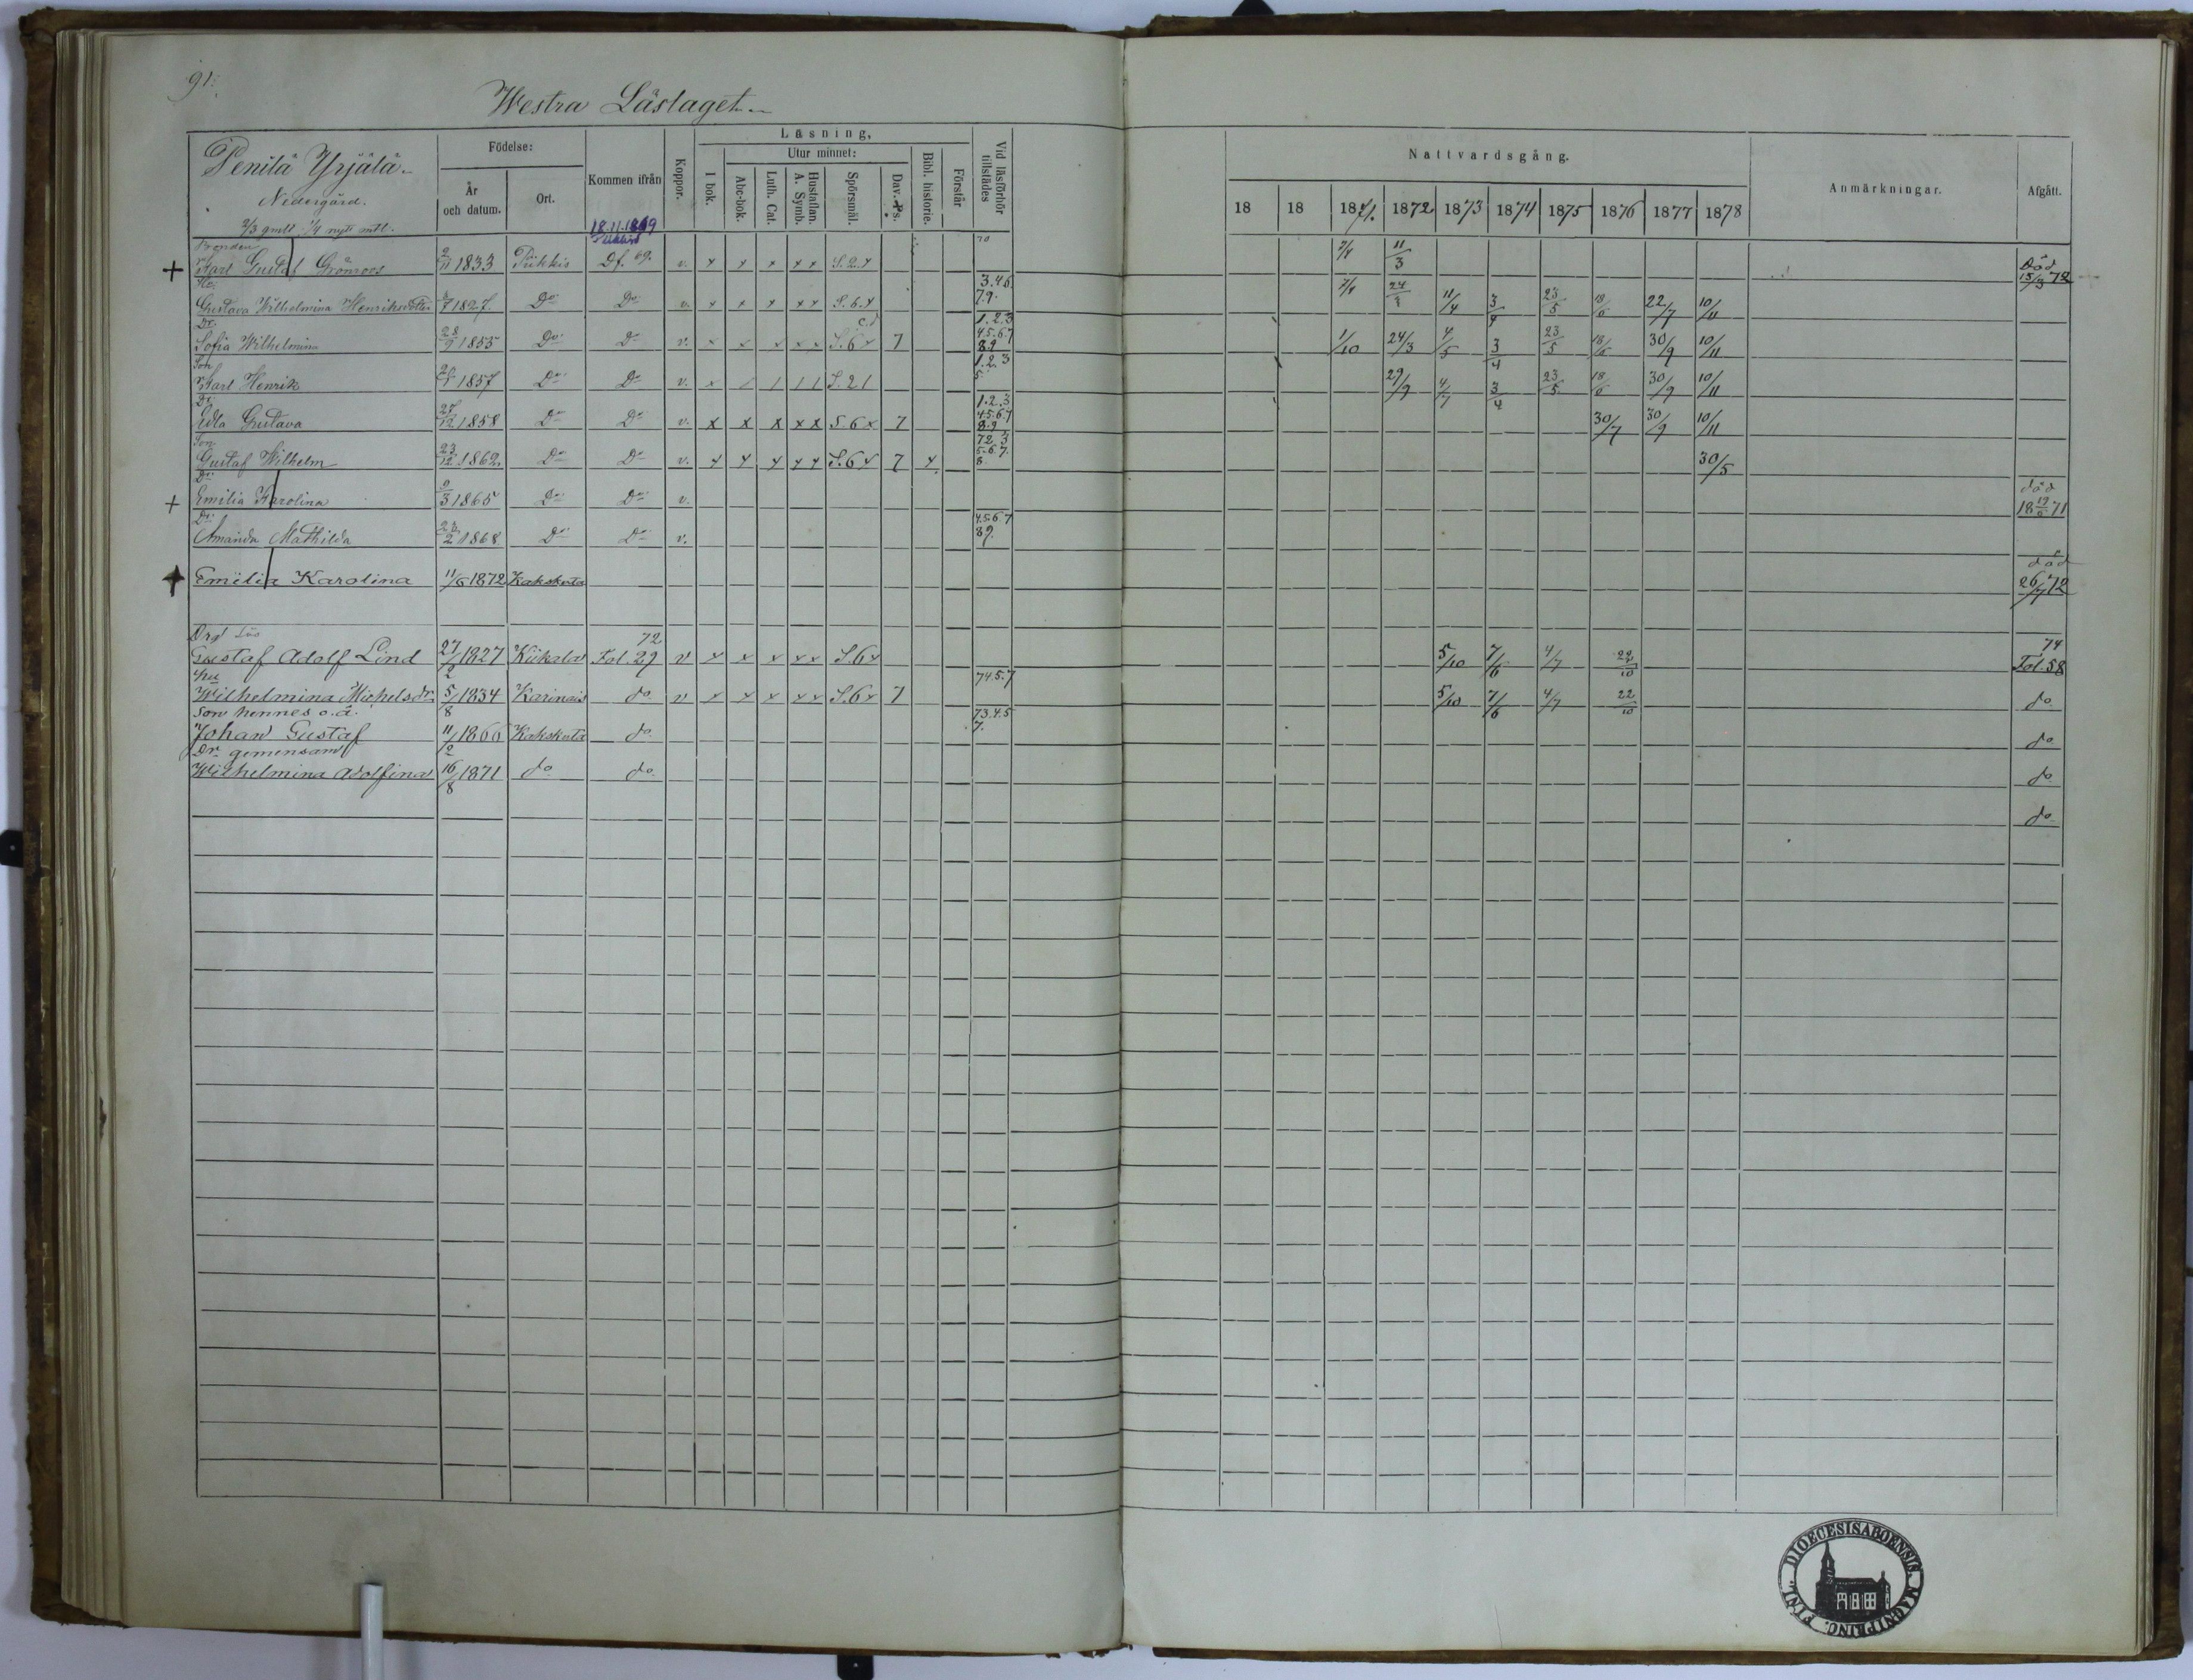 91.
Westra Läslaget.
Penilä Yrjälä.
Nedergård.
2/3 gmtl. 1/4 nytt mtl.
Födelse:
År och datum.
Ort.
Kommen ifrån
18.11.1869
Koppor.
Läsning,
I bok.
Utur minnet:
Abc-bok.
Luth. Cat.
Hustaflan. A. Symb.
Spörsmål.
Dav. Ps.
Bibl. historie.
Förstår
Vid läsförhör tillstädes
Nattvardsgång.
18 18 1871. 1872 1873 1874 1875 1876 1877 1878
Anmärkningar.
Afgått.
Bonden 70
+ Karl Gustaf Grönroos 2/11 1833 Piikkis Df. 69. v. x x x x x S. 2. x 7/4 11/3 Död 15/3 72
Hu. 3.4.6.
Gustava Wilhelmina Henriksdotter 1827. Do Do v. x x x x x S. 6. x 7.9. 7/4 24/3 11/4 3/4 23/5 18/6 22/7 10/11
Dr. 1.2.3
Sofia Wilhelmina 28/9 1855 Do Do v. x x x x x S. 6 x 7 4.5.6.7 8.9 1/10 24/3 4/5 3/4 23/5 18/6 30/9 10/11
Son 1.2.3
Karl Henrik 1857 Do Do v. x / / / / S. 2 / 5. 29/9 4/7 3/4 23/5 18/6 30/9 10/11
Dr. 1.2.3
Edla Gustava 27/12 1858 Do Do v. x x x x x S. 6 x 7 4.5.6.7 8.9 30/7 30/9 10/11
Son 72.3
Gustaf Wilhelm 23/12 1862. Do Do v. x x x x x S. 6 x 7 x. 5.6.7. 8. 30/5
Dr.
+ Emilia Karolina 9/3 1865 Do Do v. död 18 19/6 71
Dr. 4.5.6.7
Amanda Mathilda 23/2 1868 Do Do v. 8 9.
+ Emilia Karolina 11/6 1872 Kakskerta död 26/7 72
72 74
Gustaf Adolf Lind 27/2 1827 Kiikala Fol. 29 v x x x x x S. 6 x 5/10 7/6 4/7 22/10 Fol. 58
Hu 74.5.7
Wilhelmina Michelsdr. 5/8 1834 Karinais do v x x x x x S. 6 x 7 5/10 7/6 4/7 22/10 do
Son hennes o. ä. 73.4.5
Johan Gustaf 11/2 1866 Kakskerta do. 7. do
Dr. gemensam
Wilhelmina Adolfina 16/8 1871 do do. do
do
DIOECESIS ABOENSIS. MAGNI PRINC. FINL.